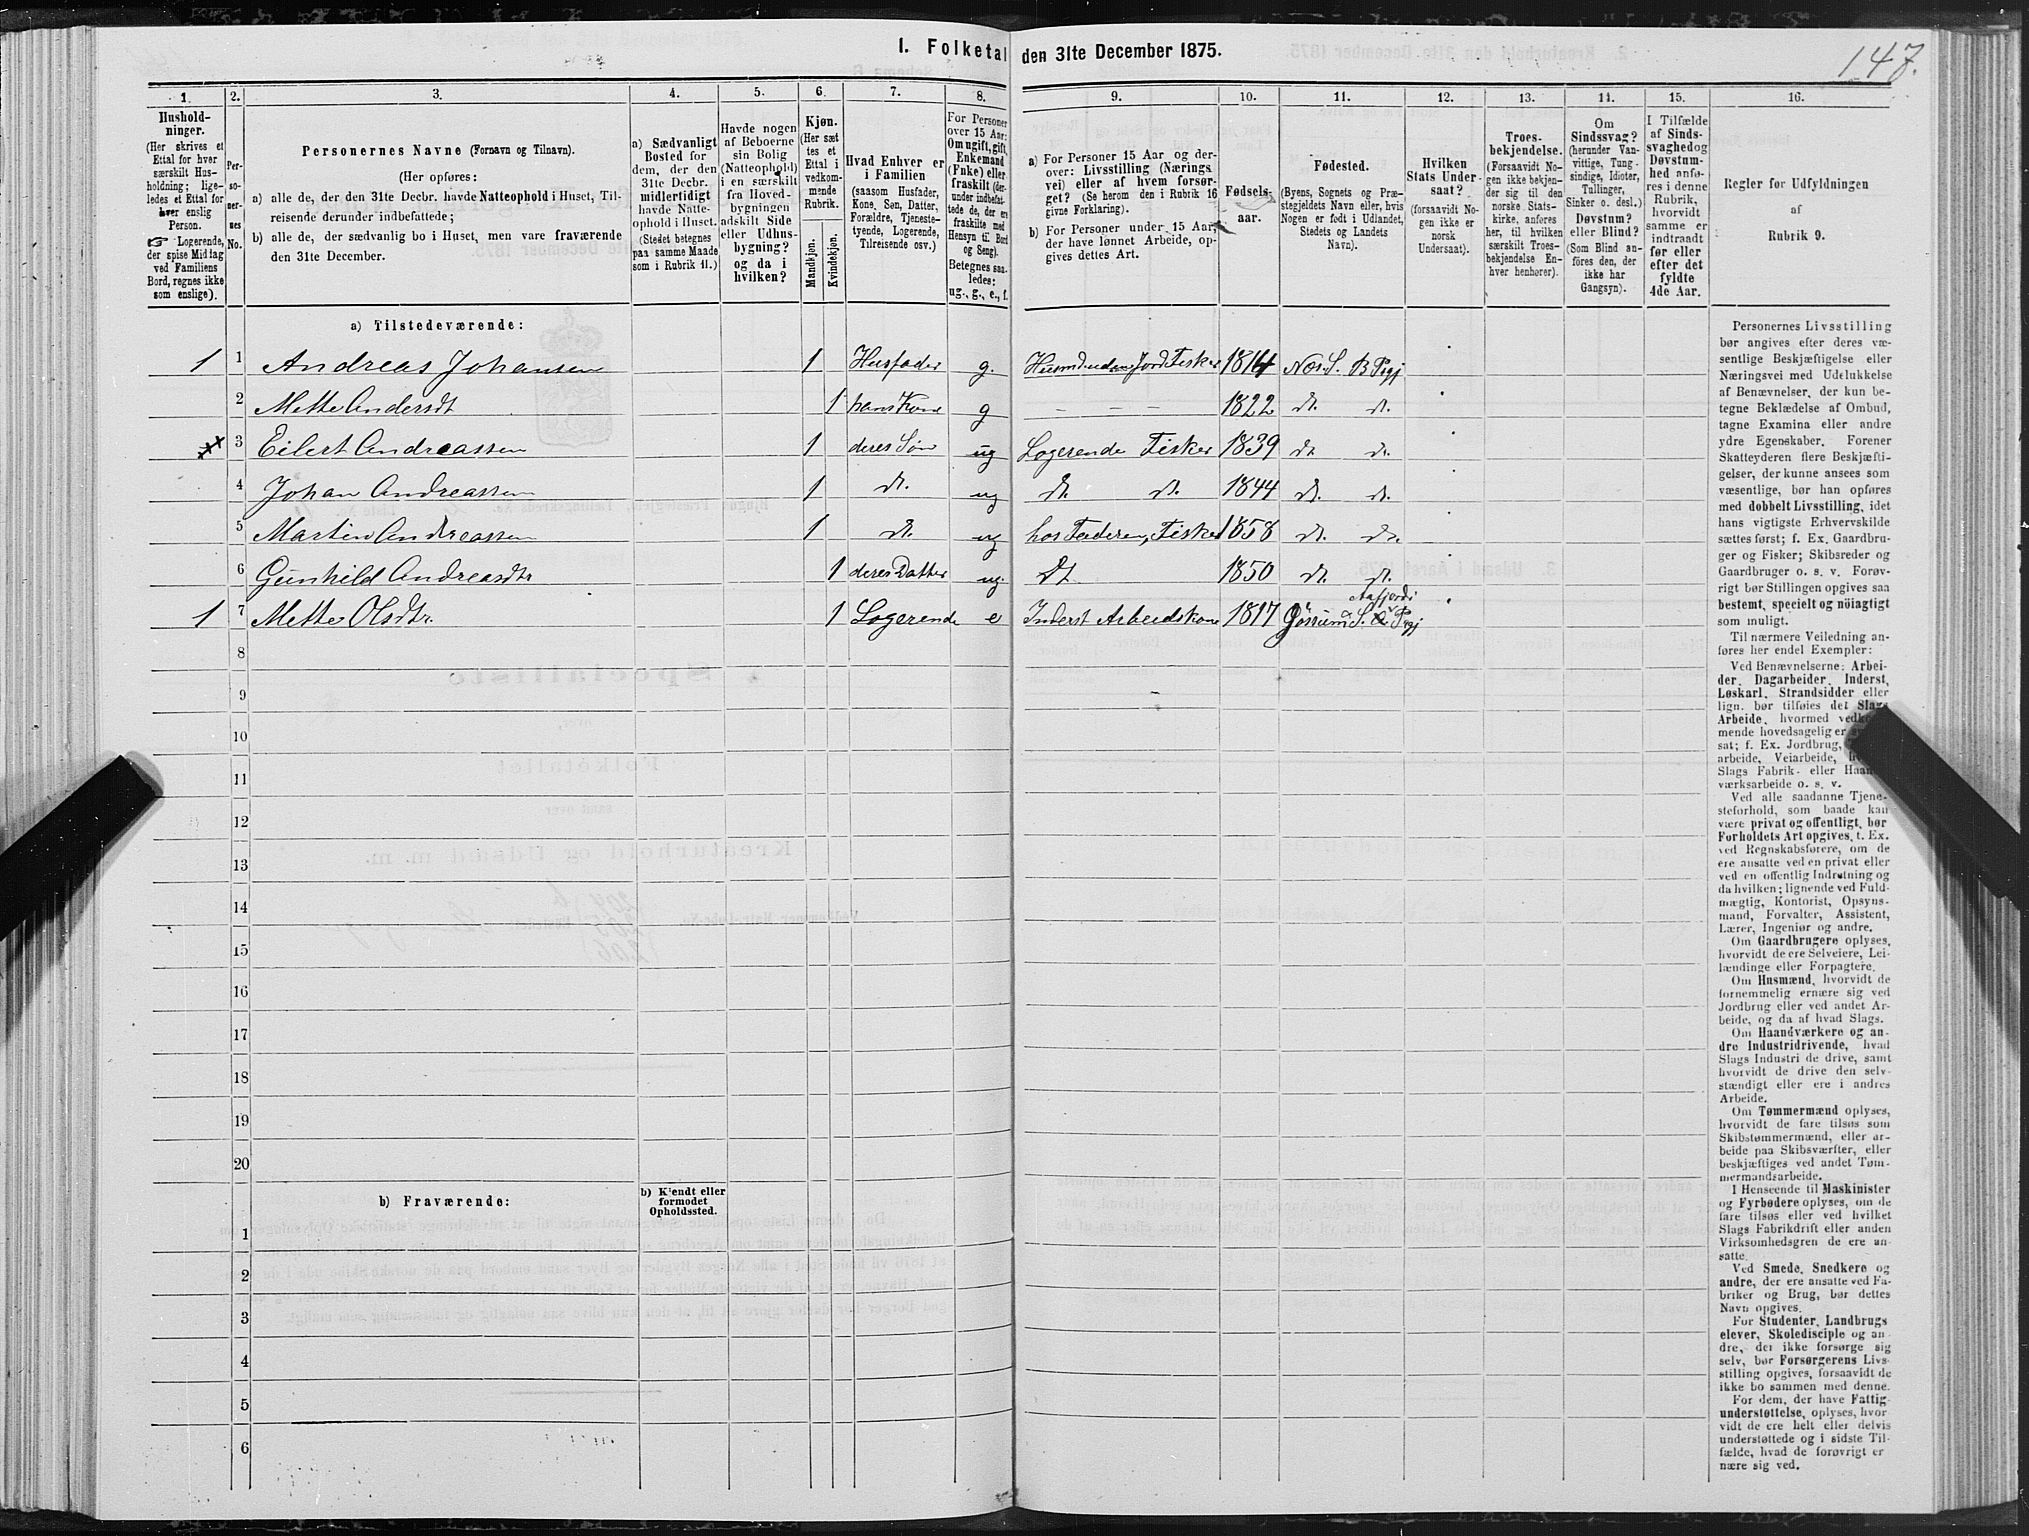 I. Folketal den 31te December 1875.
147.
1. 2. 3. 4. 5. 6. 7. 8. 9. 10. 11. 12. 13. 14. 15. 16.
Hushold-
ninger.
(Her skrives et
Ettal for hver
særskilt Hus-
holdning; lige-
ledes et Ettal for
hver enslig
Person.
☞ Logerende,
der spise Middag
ved Familiens
Bord, regnes ikke
som enslige).
Per-
so-
ner-
nes
No.
Personernes Navne (Fornavn og Tilnavn).
(Her opføres:
a) alle de, der den 31te Decbr. havde Natteophold i Huset, Til-
reisende derunder indbefattede;
b) alle de, der sædvanlig bo i Huset, men vare fraværende
den 31te December.
a) Sædvanligt
Bosted for
dem, der den
31te Decbr.
midlertidigt
havde Natte-
ophold i Huset.
(Stedet betegnes
paa samme Maade
som i Rubrik 11.)
Havde nogen
af Beboerne
sin Bolig
(Natteophold)
i en særskilt
fra Hoved-
bygningen
adskilt Side
eller Udhus-
bygning?
og da i
hvilken?
Kjøn.
(Her sæt
tes et
Ettal i
vedkom-
mende
Rubrik.
Mandkjøn.
Kvindekjøn.
Hvad Enhver er
i Familien
(saasom Husfader,
Kone, Søn, Datter,
Forældre, Tjeneste-
tyende, Logerende,
Tilreisende osv.)
For Personer
over 15 Aar:
Om ugift, gift,
Enkemand
(Enke) eller
fraskilt (der-
under indbefat-
tede de, der ere
fraskilte med
Hensyn til Bord
og Seng).
Betegnes saa-
ledes:
ug., g., e., f.
a) For Personer 15 Aar og der-
over: Livsstilling (Nærings
vei) eller af hvem forsør-
get? (Se herom den i Rubrik 16
givne Forklaring).
b) For Personer under 15 Aar,
der have lønnet Arbeide, op-
gives dettes Art.
Fødsels-
aar.
Fødested.
(Byens, Sognets og Præ-
stegjeldets Navn eller, hvis
Nogen er født i Udlandet,
Stedets og Landets
Navn).
Hvilken
Stats Under-
saat?
(forsaavidt No-
gen ikke er
norsk
Undersaat).
Troes-
bekjendelse.
(Forsaavidt No-
gen ikke bekjen-
der sig til den
norske Stats-
kirke, anføres
her, til hvilken
særskilt Troes-
bekjendelse En-
hver henhører).
Om
Sindssvag?
(herunder Van-
vittige, Tung-
sindige, Idioter,
Tullinger,
Sinker o. desl.)
Døvstum?
eller Blind?
(Som Blind an-
føres den, der
ikke har
Gangsyn).
I Tilfælde
af Sinds-
svaghed og
Døvstum-
hed anfø-
res i denne
Rubrik,
hvorvidt
samme er
indtraadt
før eller
efter det
fyldte
4de Aar.
Regler for Udfyldningen
af
Rubrik 9.
a) Tilstedeværende:
1 1 Andreas Johansen 1 Husfader g. 1814 Næs S. B Pgj
2 Mette Andersdt 1 hans Kone g – – – 1822 dt. dt.
3 Eilert Andreassen 1 deres Søn ug Logerende Fisker 1839 dt dt.
4 Johan Andreassen 1 dt. ug dt. dt. 1844 dt. dt.
5 Martin Andreassen 1 dt. ug hos Faderen, Fisker 1858 dt. dt.
6 Gunhild Andreasdtr 1 deres Datter ug. dt 1850 dt. dt.
Aafjords
1 7 Mette Olsdtr. 1 Logerende e Inderst Arbeidskone 1817 S. Pgj
8
9
10
11
12
13
14
15
16
17
18
19
20
b) Fraværende:
b) Kjendt eller
formodet
Opholdssted.
1
2
3
4
5
6
Personernes Livsstilling
bør angives efter deres væ-
sentlige Beskjæftigelse eller
Næringsvei med Udelukkelse
af Benævnelser, der kun be-
tegne Beklædelse af Ombud,
tagne Examina eller andre
ydre Egenskaber. Forener
Skatteyderen flere Beskjæfti-
gelser, der kunne ansees som
væsentlige, bør han opføres
med dobbelt Livsstilling, idet
hans vigtigste Erhvervskilde
sættes først; f. Ex. Gaardbru-
ger og Fisker; Skibsreder og
Gaardbruger o. s. v. Forøv-
rigt bør Stillingen opgives saa
bestemt, specielt og nøiagtigt
som muligt.
Til nærmere Veiledning an-
føres her endel Exempler:
Ved Benævnelserne: Arbei-
der, Dagarbeider, Inderst,
Løskarl, Strandsidder eller
lign. bør tilføies det Slags
Arbeide, hvormed vedkom-
mende hovedsagelig er
sat; f. Ex. Jordbrug,
arbeide, Veiarbeide,
Slags Fabrik- eller Haand-
værksarbeide o. s. v.
Ved alle saadanne Tjene-
steforhold, som baade kan
være privat og offentligt, bør
Forholdets Art opgives, t. Ex.
ved Regnskabsførere, om de
ere ansatte ved en privat eller
ved en offentlig Indretning og
da hvilken; lignende ved Fuld-
mægtig, Kontorist, Opsyns-
mand, Forvalter, Assistent,
Lærer, Ingeniør og andre.
Om Gaardbrugere oplyses,
hvorvidt de ere Selveiere, Lei-
lændinge eller Forpagtere.
Om Husmænd, hvorvidt de
fornemmelig ernære sig ved
Jordbrug eller ved andet Ar-
beide, og da af hvad Slags.
Om Haandværkere og an-
dre Industridrivende, hvad
Slags Industri de drive, samt
hvorvidt de drive den selv-
stændigt eller ere i andres
Arbeide.
Om Tømmermænd oplyses,
hvorvidt de fare tilsøs som
Skibstømmermænd, eller ar-
beide paa Skibsværfter, eller
beskjæftiges ved andet Tøm-
mermandsarbeide.
I Henseende til Maskinister
og Fyrbødere oplyses, om de
fare tilsøs eller ved hvilket
Slags Fabrikdrift eller anden
Virksomhedsgren de ere an-
satte.
Ved Smede, Snedkere og
andre, der ere ansatte ved Fa-
briker og Brug, bør dettes
Navn opgives.
For Studenter, Landbrugs
elever, Skoledisciple og an-
dre, der ikke forsørge sig
selv, bør Forsørgerens Livs-
stilling opgives, forsaavidt de
ikke bo sammen med denne.
For dem, der have Fattig-
understøttelse, oplyses, hvor-
vidt de ere helt eller delvis
understøttede og i sidste Til-
fælde, hvad de forøvrigt er
nære sig ved.